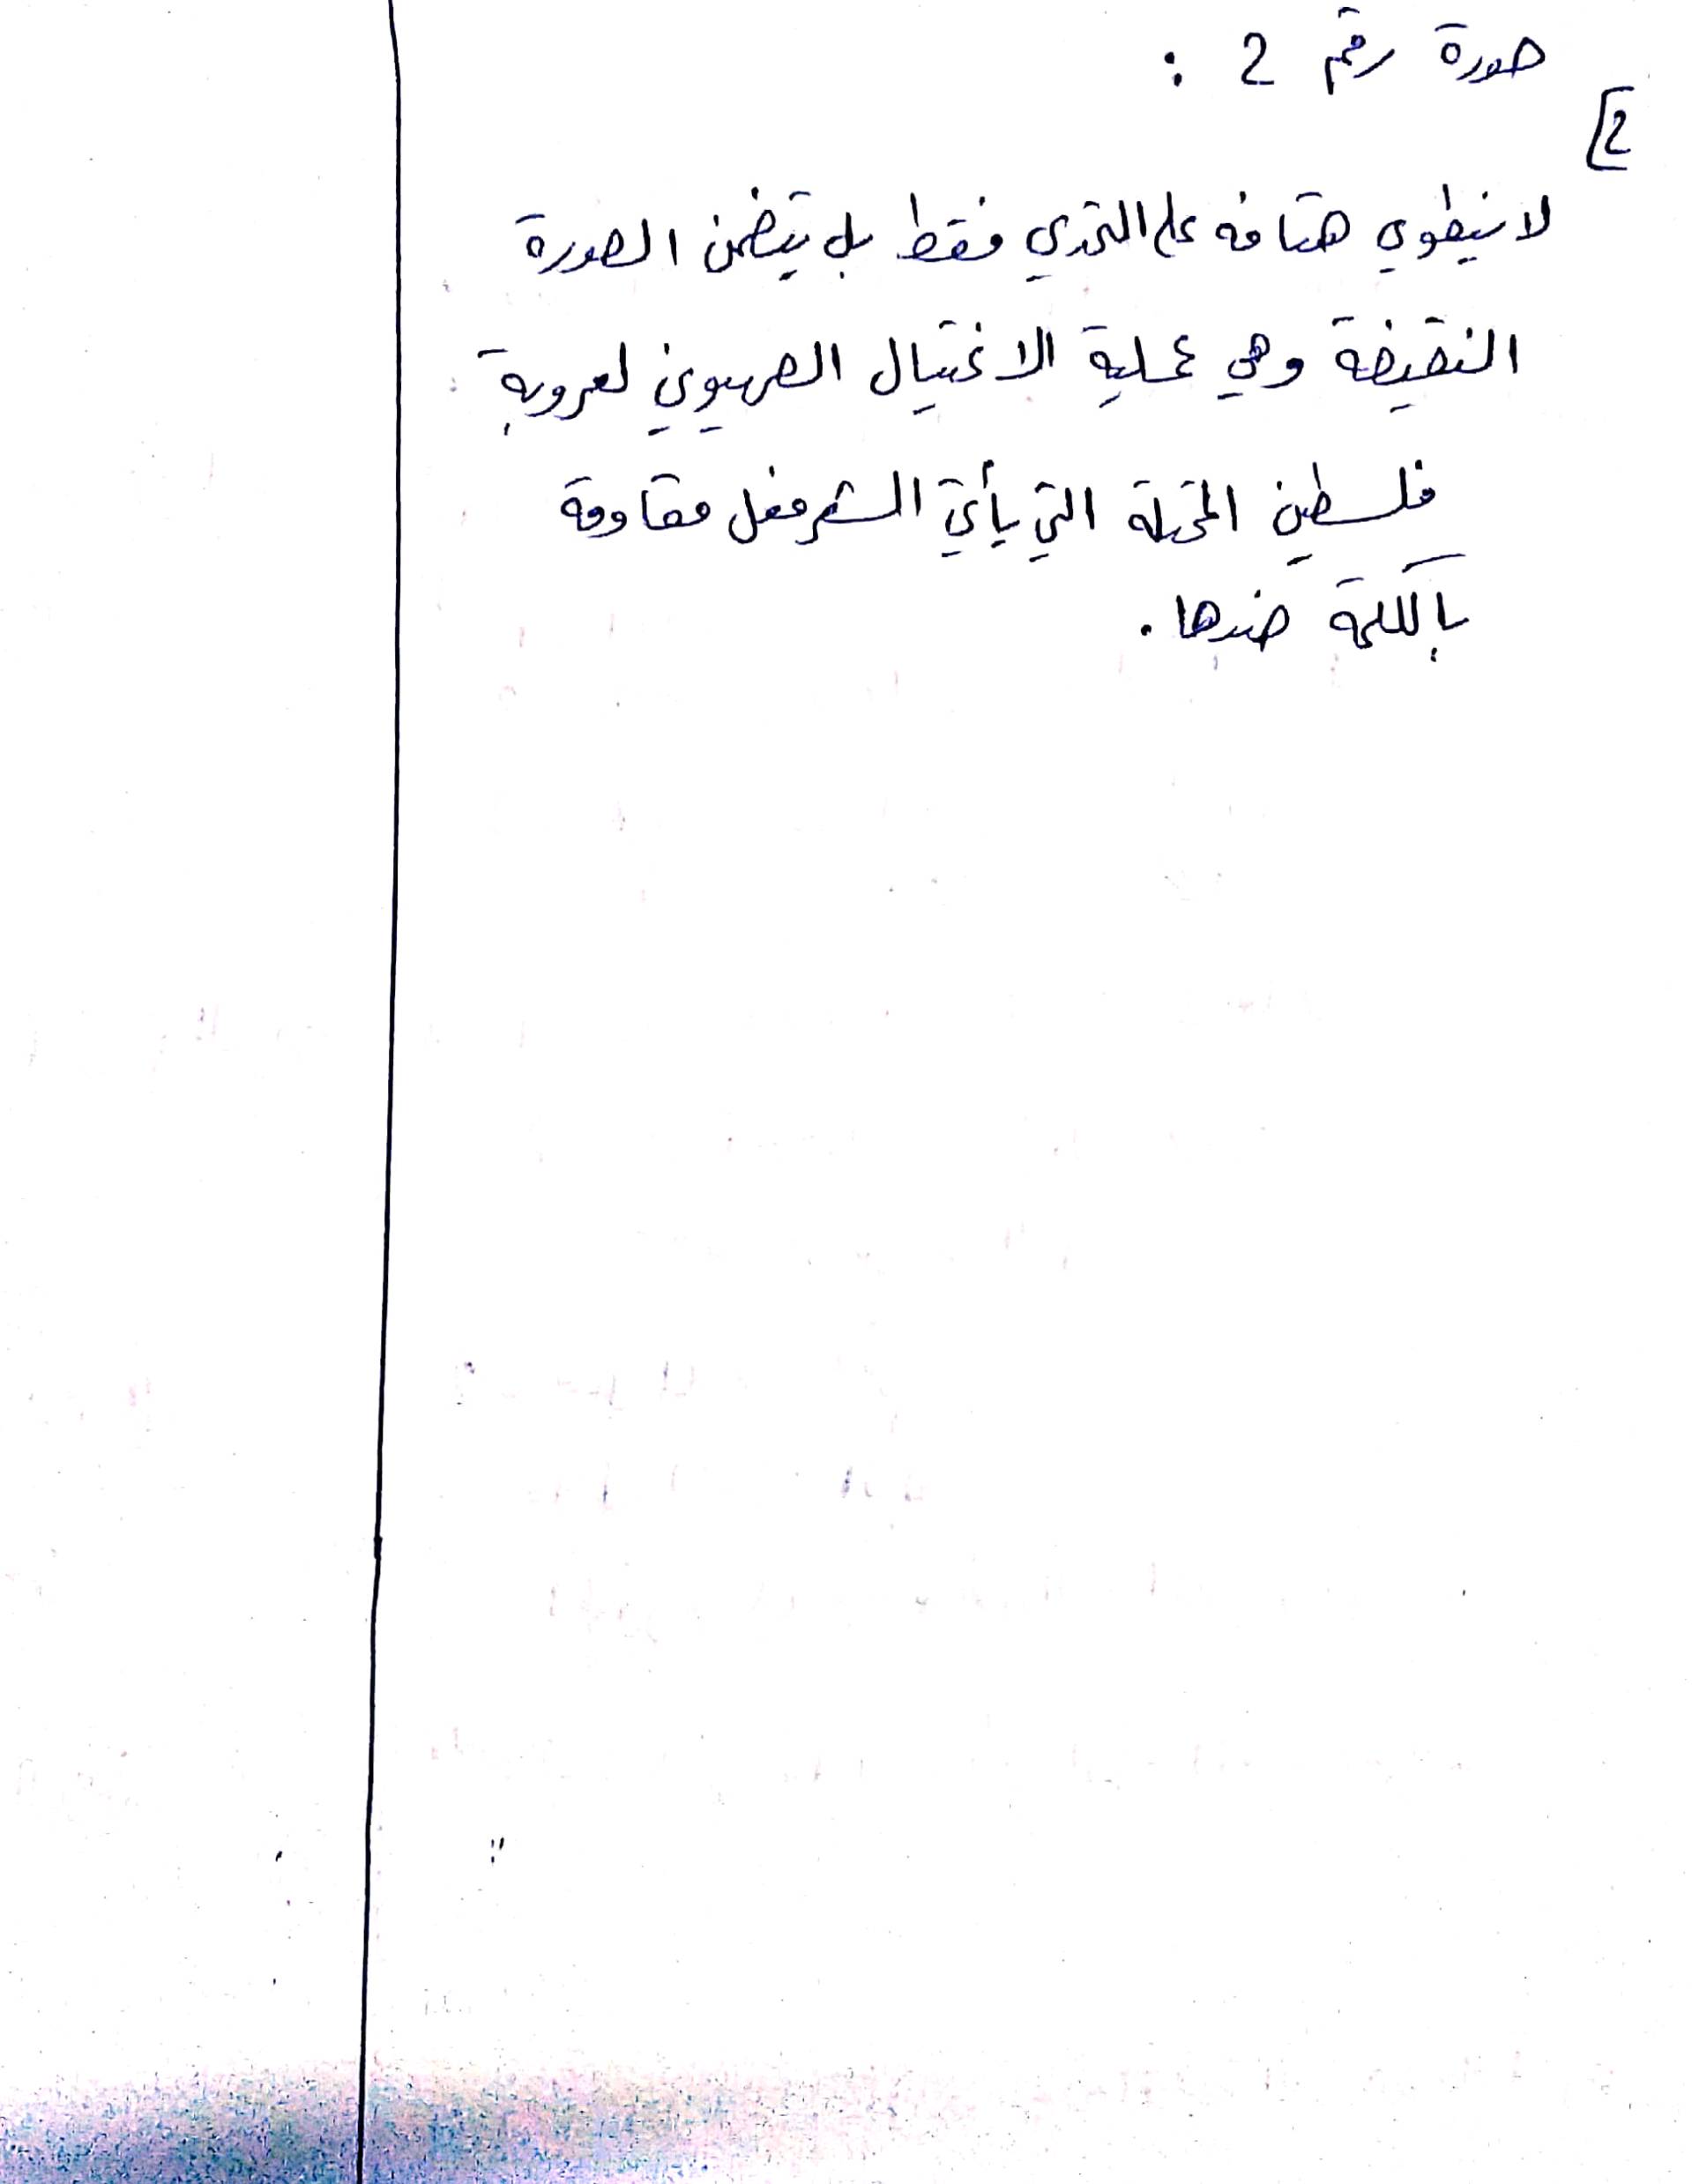 صورة رقم 2 :
2]
لا ينطوي هتافه على التحدي فقط بل يتضمن الصورة
النقيضة وهي عملية الاغتيال الصهيوني لعروبة
فلسطين المحتلة التي يأتي الشعر فعل مقاومة
بالكلمة ضدها.